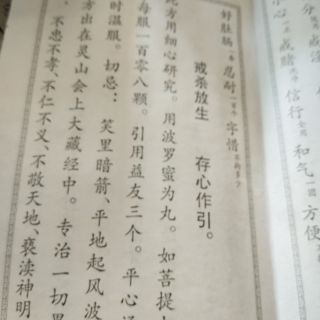 心 戒赌 信行 全用 和气 方便
好肚肠 一条 忍耐 字惜 不拘多少
戒杀放生 存心作引。
方用细心研究。用波罗蜜为丸。如菩提
每服一百零八颗。引用益友三个。平心
时温服。切忌：笑里暗箭、平地起风波
方出在灵山会上大藏经中。专治一切
不忠不孝、不仁不义、不敬天地、亵渎神明